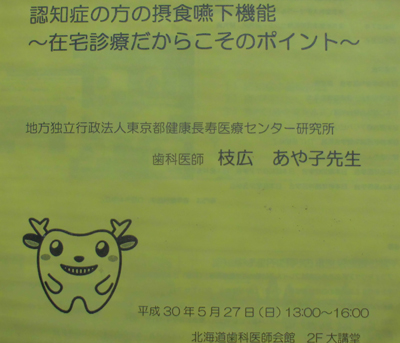 認知症の方の摂食嚥下機能
～在宅診療だからこそのポイント～
地方独立行政法人東京都健康長寿医療センター研究所
歯科医師 枝広 あや子先生
平成30年5月27日(日)13:00～16:00
北海道歯科医師会館 2F大講堂